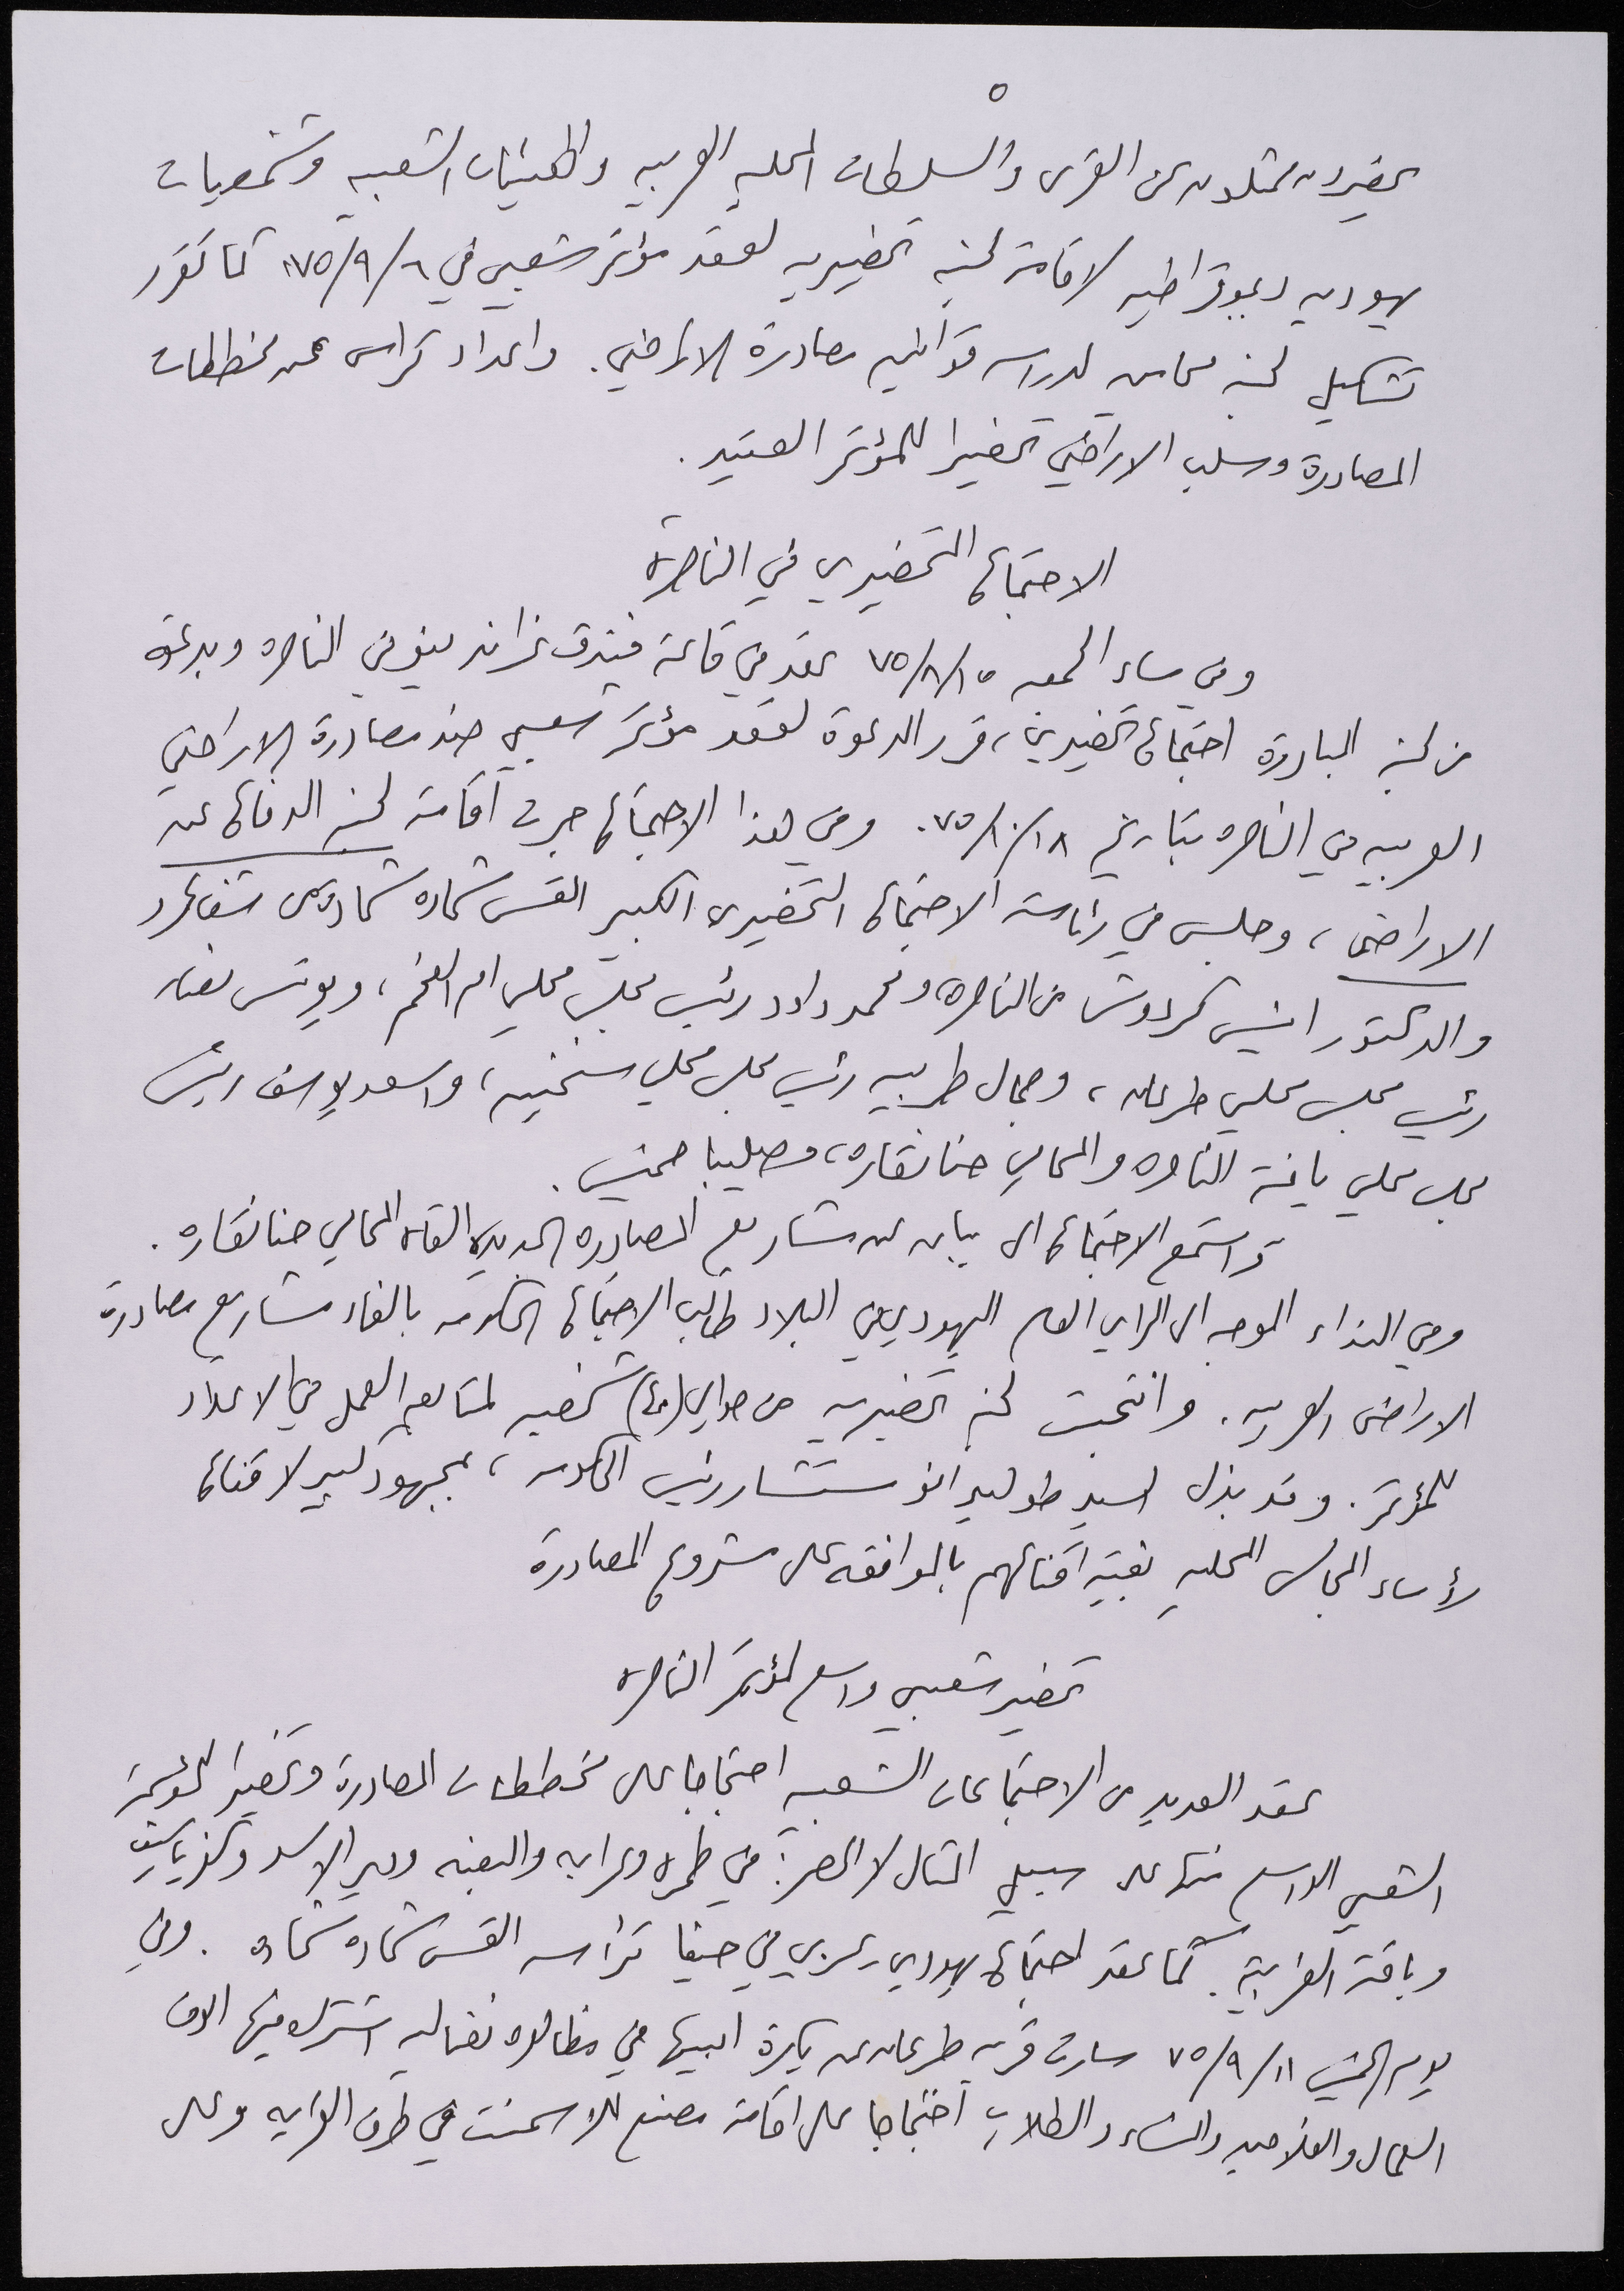 ٥
يحضره ممثلون عن القرى والسلطات المحليه العربيه والهيئات الشعبيه وشخصيات
يهوديه ديموقراطيه لاقامة لجنه تحضيريه لعقد مؤتمر شعبي في ٧٥/٩/٦ كما تقرر
تشكيل لجنه محامين لدراسه قوانين مصادرة الاراضي. واعداد كراس عن مخططات
المصادرة وسلب الاراضي تحضيرا للمؤتمر العتيد.
الاجتماع التحضيري في الناصرة
وفي مساء الجمعه ٧٥/٨/١٥ عقد في قاعة فندق غراند نيو في الناصره وبدعوه
من لجنه المبادرة اجتماع تحضيري، قرر الدعوة لعقد مؤتمر شعبي ضد مصادرة الاراضي
العربيه في الناصره بتاريخ ٧٥/١٠/١٨. وفي هذا الاجتماع جرت اقامة لجنه الدفاع عن
الاراضي، وجلس في رئاسة الاجتماع التحضيري الكبير القس شحاده شحاده من شفاعمرو
والدكتور انيس كردوش من الناصرة ومحمد داود رئيس مجلس محلي ام الفحم، ويونس نصار
رئيس مجلس محلي طرعان، وجمال طربيه رئيس مجلس محلي سخنين، واسعد يوسف رئيس
مجلس محلي يافة الناصره والمحامي حنا نقاره، وصليبا خميس.
واستمع الاجتماع الى بيان عن مشاريع المصادره الجديده القاه المحامي حنا نقاره.
وفي النداء الموجه الى الراي العام اليهودي في البلاد طالب الاجتماع الحكومه بالغاء مشاريع مصادرة
الاراضي العربيه. وانتخبت لجنه تحضيريه من حوالي شخصيه لمتابعه العمل في الاعداد
للمؤتمر. وقد بذل السيد طوليدانو مستشار رئيس الحكومه، مجهود كبير لاقناع
رؤساء المجالس المحليه بغية اقناعهم بالموافقه على مشروع المصادرة
تحضير شعبي واسع لمؤتمر الناصره
عقد العديد من الاجتماعات الشعبيه احتجاجا على مخططات المصادرة وتحضيرا للمؤتمر
الشعبي الواسع منها على سبيل المثال لا الحصر: في طمره وعرابه والبعنه ودير الاسد وكفر ياسيف
وباقة الغربية. كما عقد اجتماع يهودي-عربي في حيفا ترأسه القس شحاده شحاده. وفي
يوم الخميس ٧٥/٩/١١ سارت قريه طرعان عن بكرة ابيها في مظاهره نضاليه اشترك فيها الوف
العمال والفلاحين والنساء والطلاب احتجاجا على اقامة مصنع للاسمنت في طرف القرايه وعلى